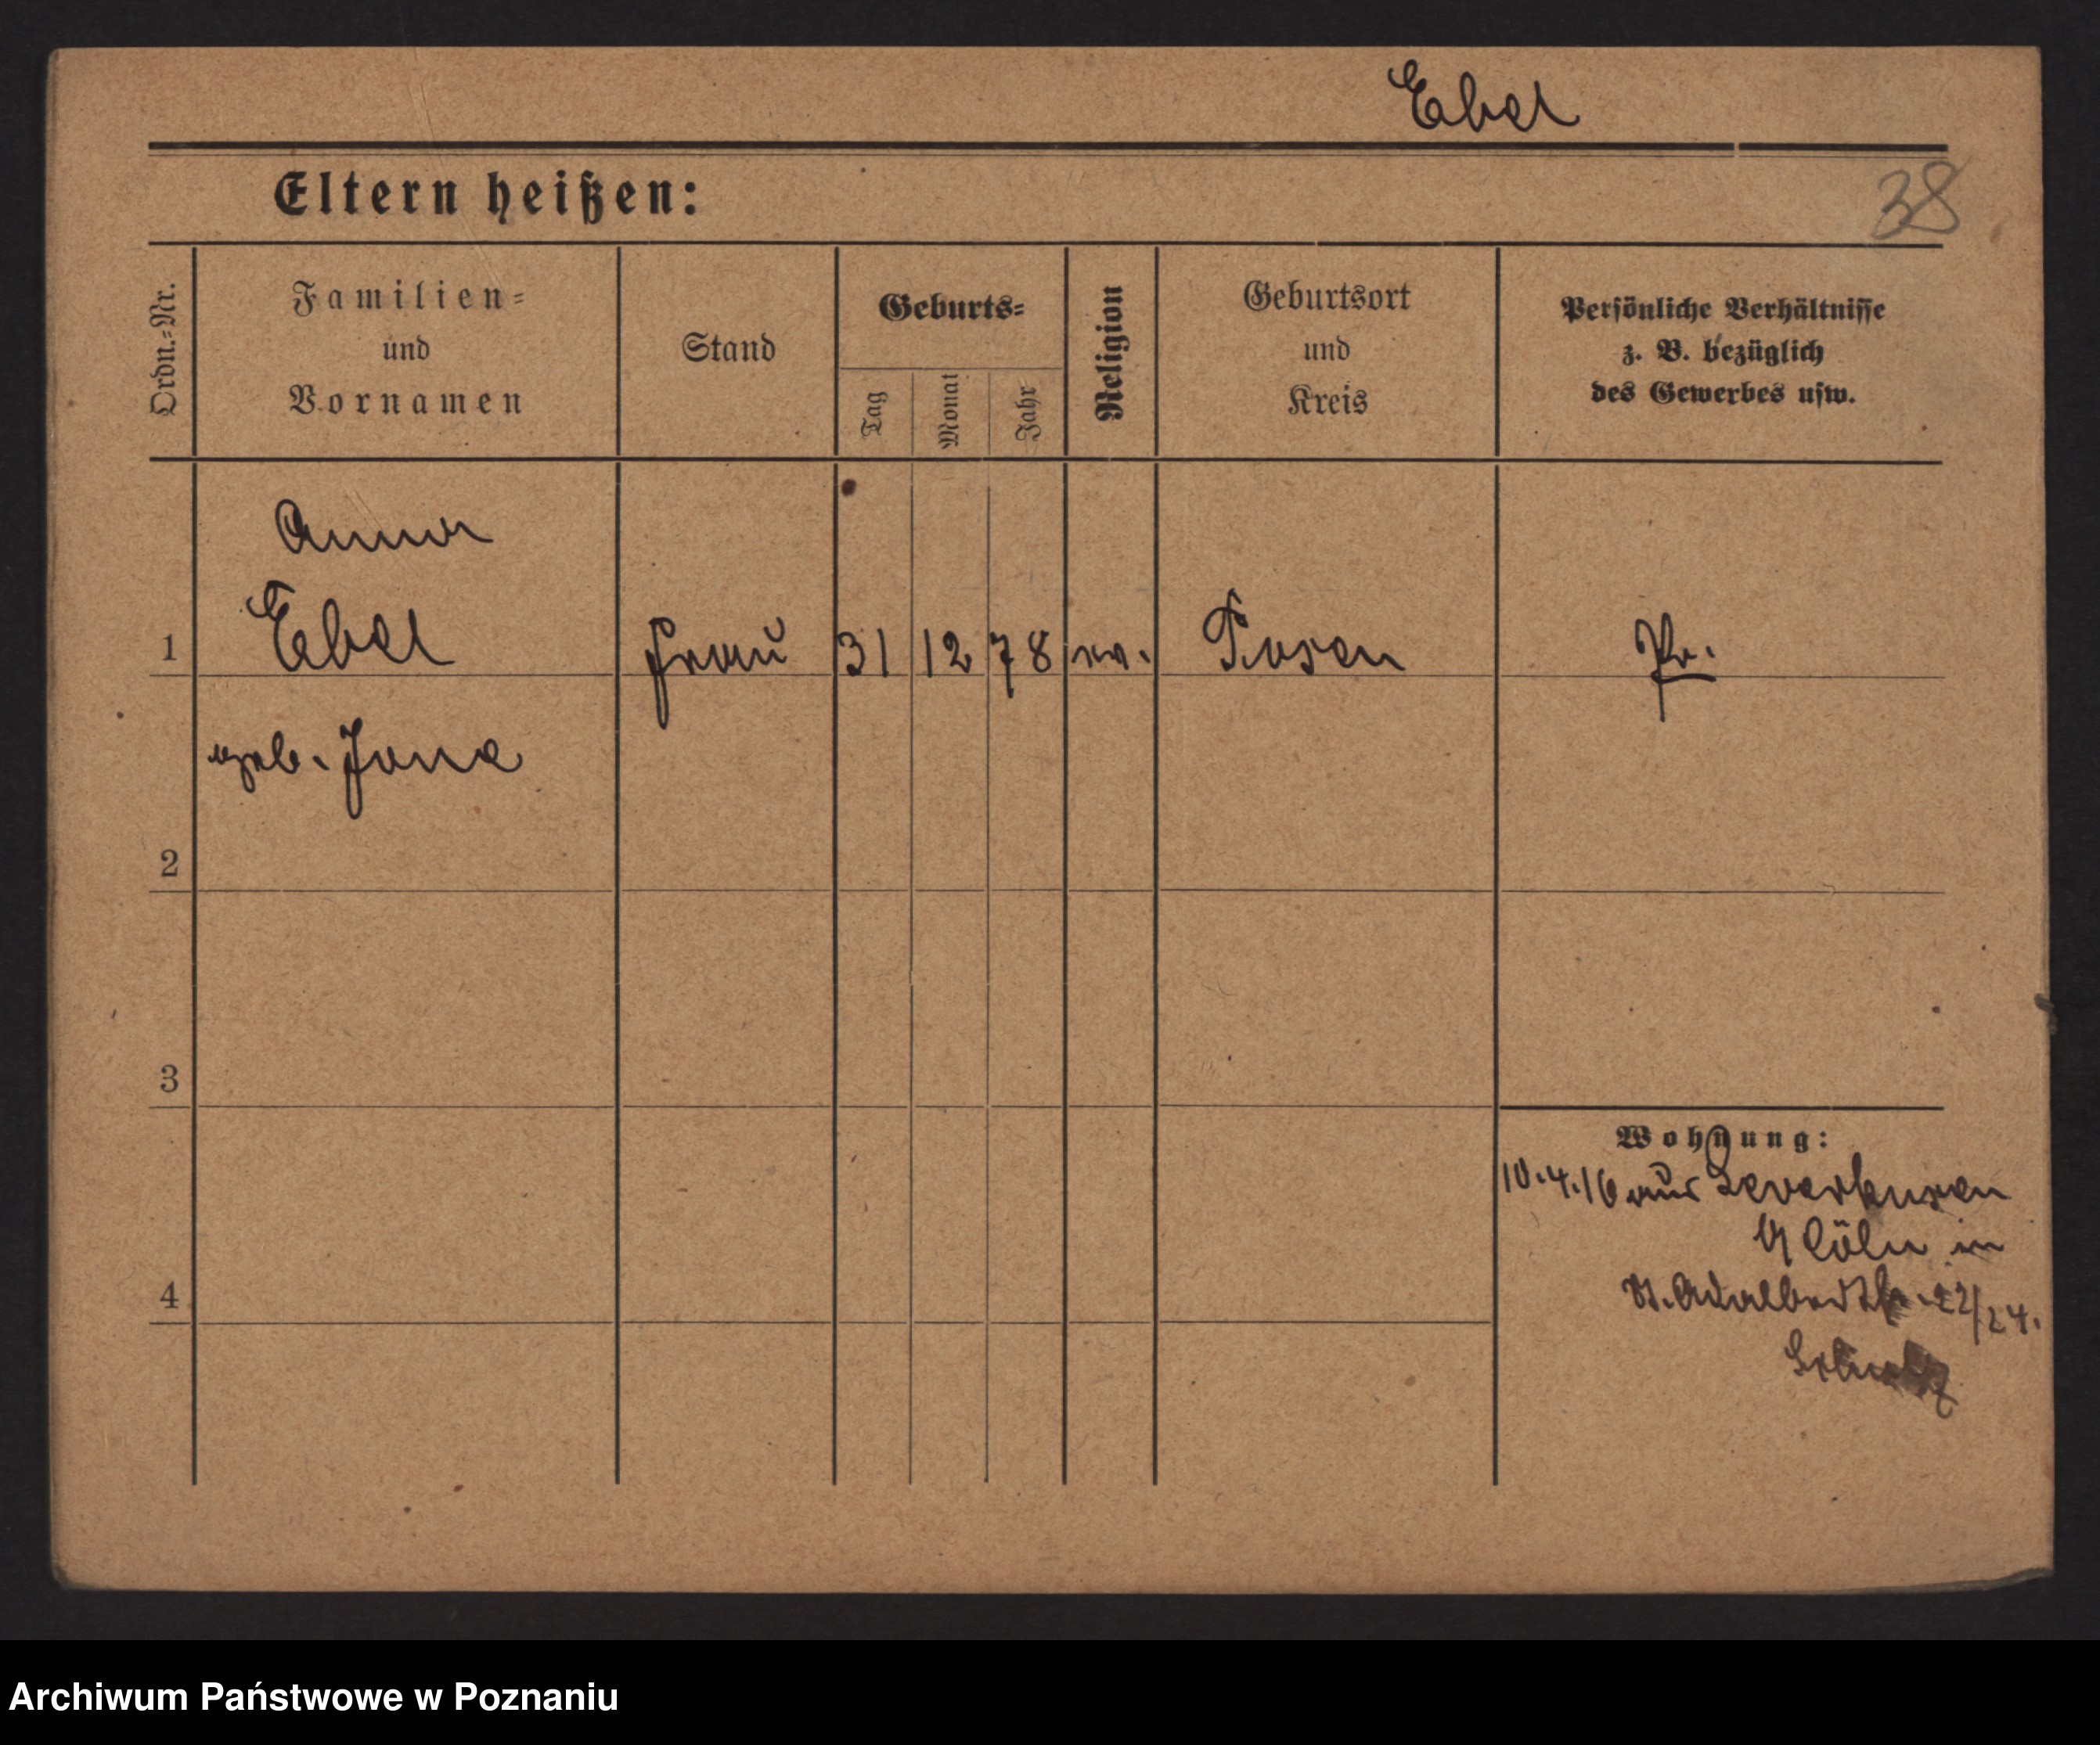 Ebel
Eltern heißen:
38
Ordn.-Nr.
Familien-
und
Vornamen
Stand
Geburts-
Tag
Monat
Jahr
Religion
Geburtsort
und
Kreis
Persönliche Verhältnisse
z. B. bezüglich
des Gewerbes usw.
Anna
1 Ebel Frau 31 12 78 ev. Posen Pr.
geb. Jona
2
3
Wohnung:
10.4.16 aus Leverkusen
Cöln in
4 St. Adalbertstr. 22/24.
Archiwum Państwowe w Poznaniu